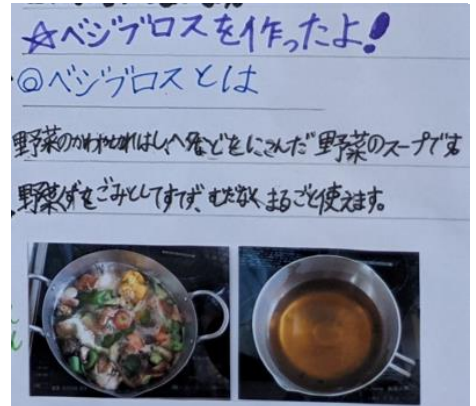 ☆ベジブロスを作ったよ!
◎ベジブロスとは
野菜のかわやきれはし、へたなどをにこんだ野菜のスープです
野菜くずをごみとしてすてず、むだなく、まるごと使えます。